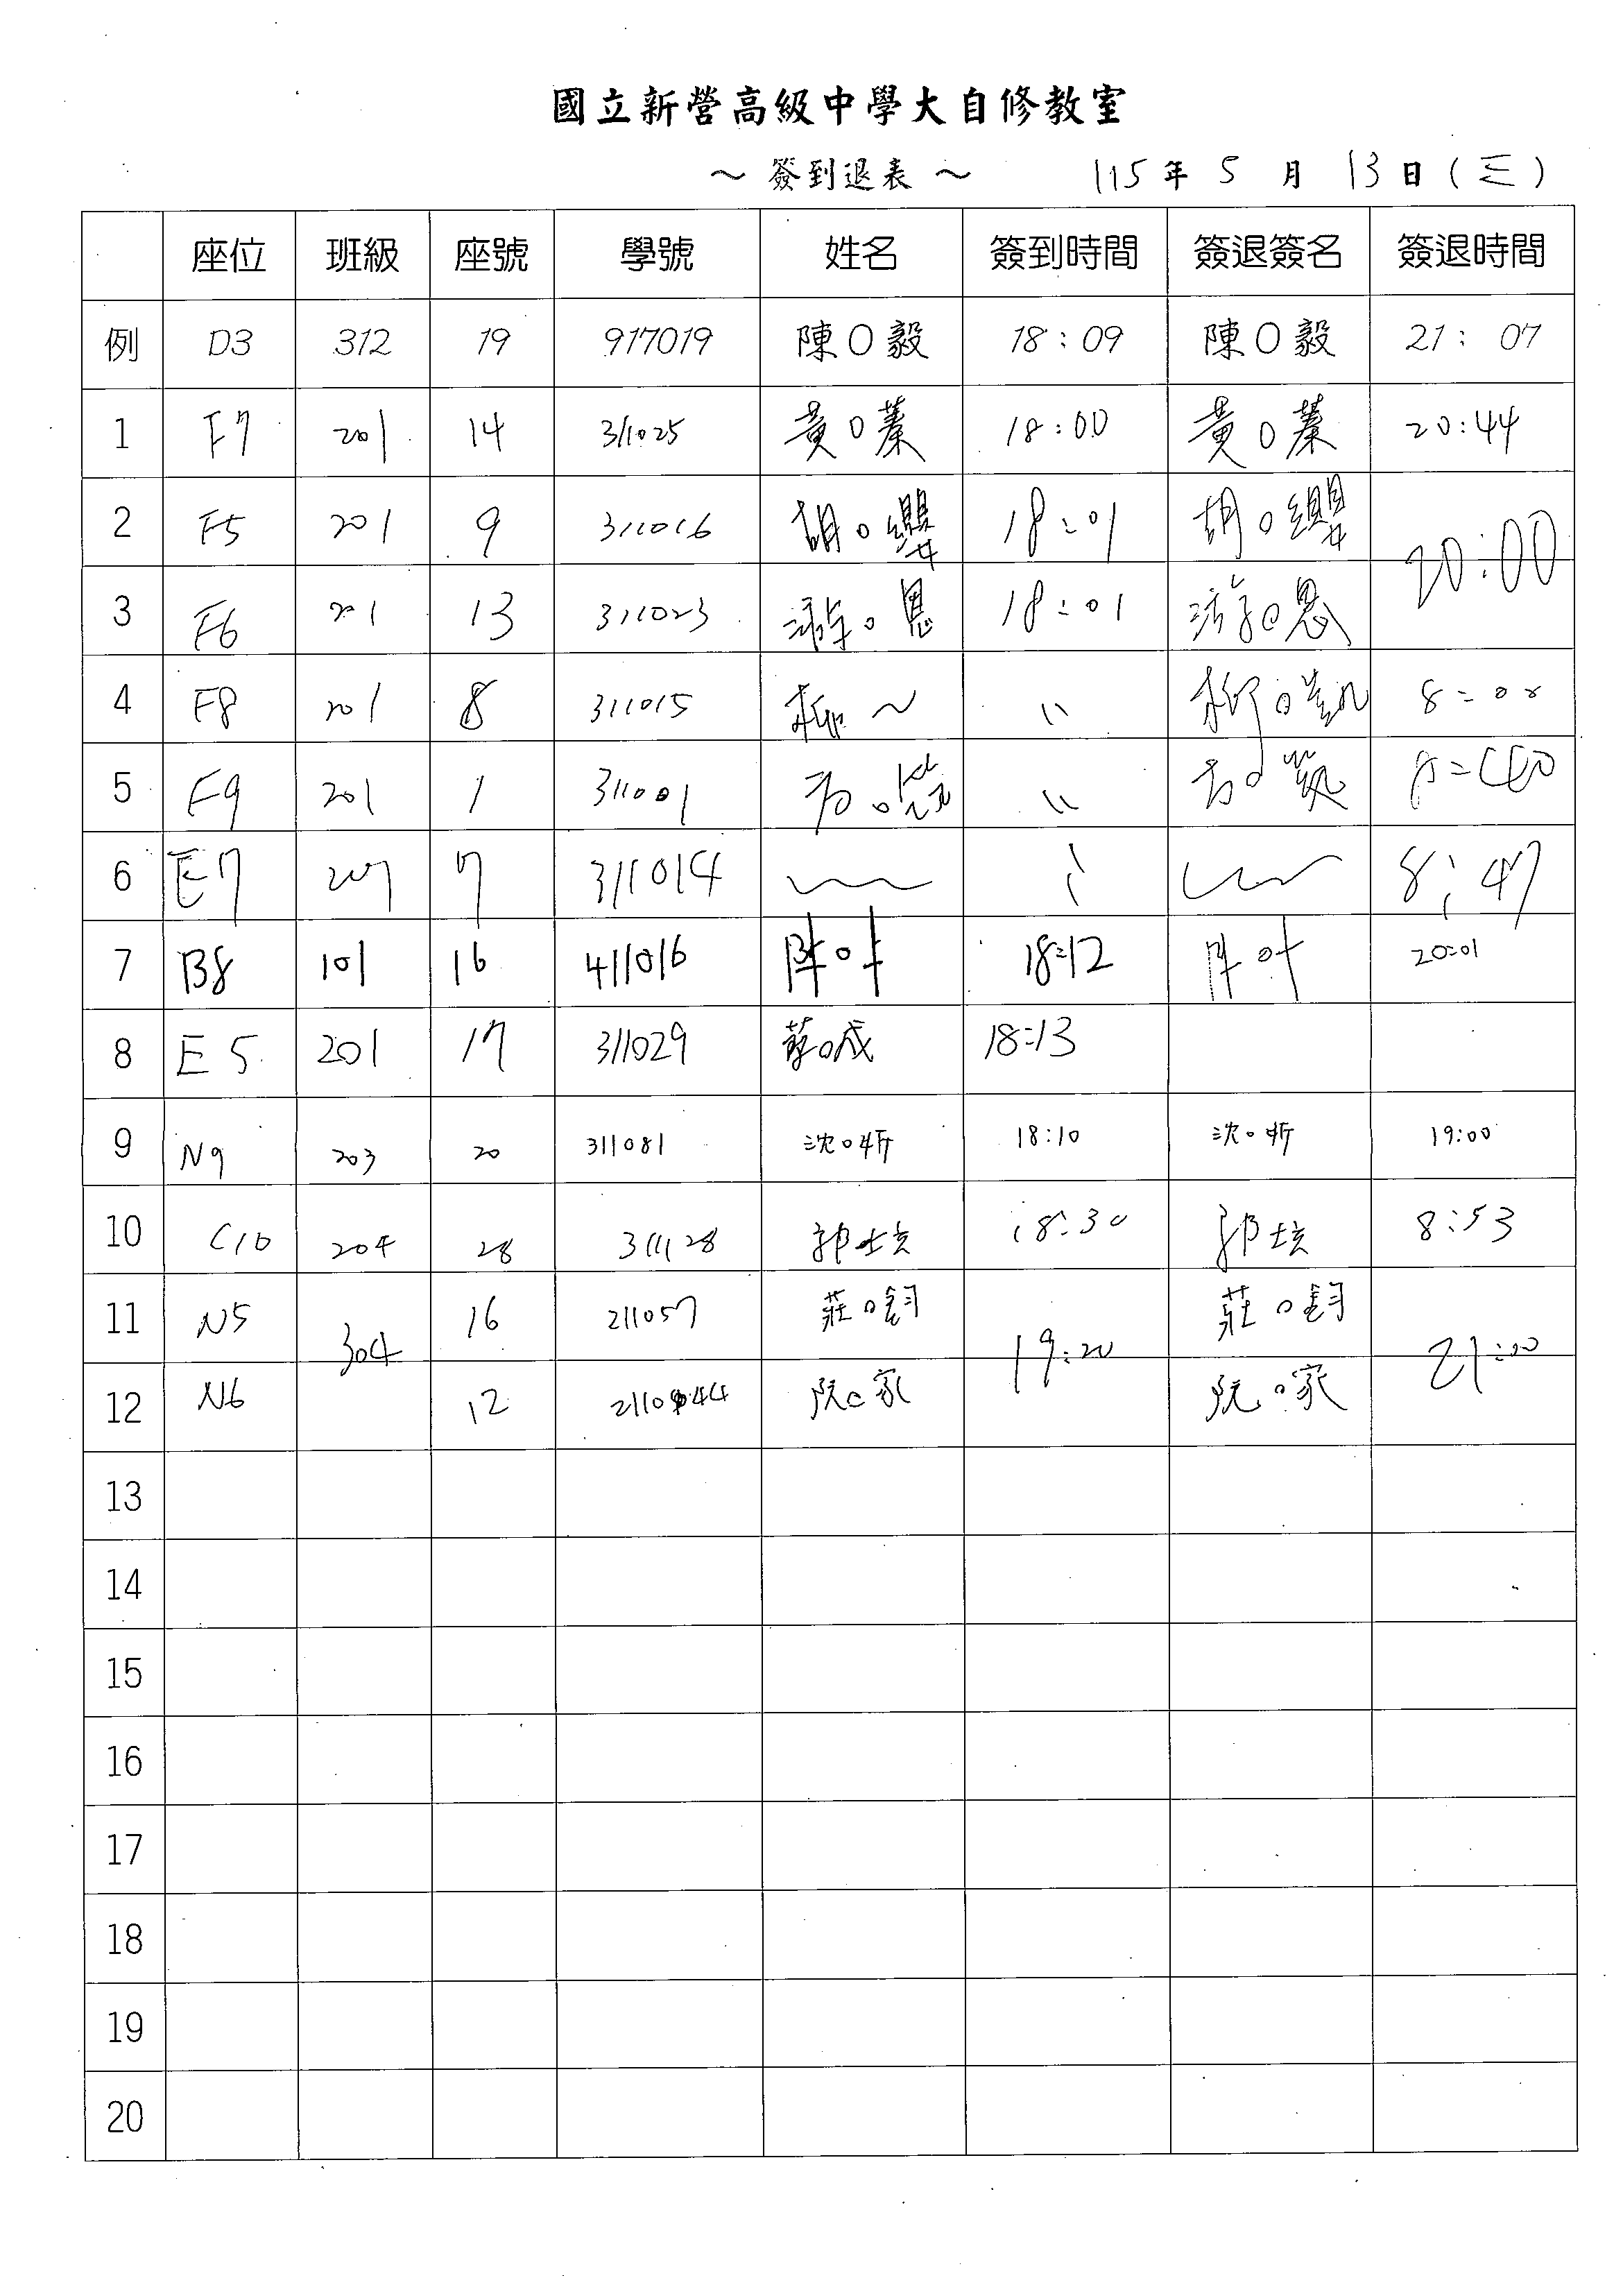 國立新營高級中學大自修教室
～ 簽到退表 ～ 115 年 5 月 13 日 (三)
座位 班級 座號 學號 姓名 簽到時間 簽退簽名 簽退時間
例 D3 312 19 917019 陳O毅 18:09 陳O毅 21:07
1 F7 201 14 311025 黃O蓁 18:00 黃O蓁 20:44
2 F5 201 9 311016 胡O纓 18:01 胡O纓 20:00
3 F6 201 13 311023 游O恩 18:01 游O恩
4 F8 201 8 311015 柳～ " 柳O凱 8:00
5 F9 201 1 311001 方O " 方O
6 E7 207 7 311014 8:47
7 B8 101 16 411016 18:12 20:01
8 E5 201 17 311029 蔡O成 18:13
9 N9 203 20 311081 沈O妡 18:10 沈O妡 19:00
10 C10 204 28 311128 郭 18:30 郭 8:53
11 N5 304 16 211057 莊O鈞 19:20 莊O鈞 21:00
12 N6 12 211044 阮O家 阮O家
13
14
15
16
17
18
19
20